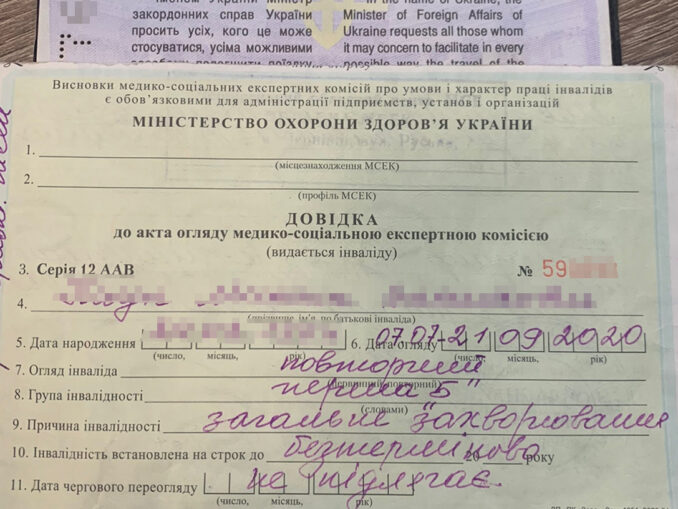 Міністр
закордонних справ України
просить усіх, кого це може
стосуватися, усіма можливими
the name of Ukraine, the
Minister of Foreign Affairs of
Ukraine requests all those whom
it may concern to facilitate in every
possible way the travel of the
Висновки медико-соціальних експертних комісій про умови і характер праці інвалідів
є обов'язковими для адміністрації підприємств, установ і організацій
МІНІСТЕРСТВО ОХОРОНИ ЗДОРОВ'Я УКРАЇНИ
1.
(місцезнаходження МСЕК)
2.
(профіль МСЕК)
ДОВІДКА
до акта огляду медико-соціальною експертною комісією
(видається інваліду)
3. Серія 12 ААВ № 59
4.
(прізвище, ім'я, по батькові інваліда)
5. Дата народження 6. Дата огляду 07.07-21 09 2020
(число, місяць, рік) (число, місяць, рік)
7. Огляд інваліда повторний
(первинний, повторний)
8. Група інвалідності перша "Б"
(словами)
9. Причина інвалідності загальне захворювання
10. Інвалідність встановлена на строк до безтерміново 20 року
11. Дата чергового переогляду не підлягає
(число, місяць, рік)